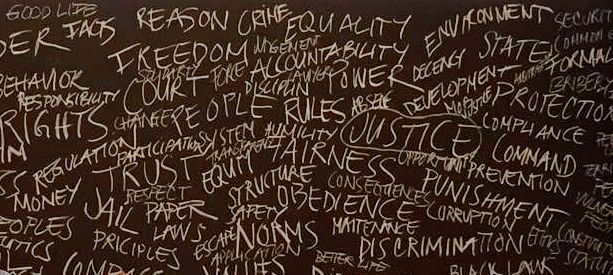 GOOD LIFE
REASON CRIME EQUALITY ENVIRONMENT SECURIT
DER FACTS JUDGEMENT COMMON
FREEDOM ACCOUNTABILITY DECENCY STATE FORMAL
BEHAVIOR SOLIDARITY FORCE DISCIPLIN LAWYER POWER DEVELOPMENT BRIBER
RESPONSIBILITY COURT PEOPLE RULES ABUSE PROTECTION
RIGHTS CHANGE SYSTEM HUMILITY JUSTICE COMPLIANCE
REGULATION PARTICIPATION TRANSPARENT FAIRNESS OPPORTUNITY PREVENTION COMMAND
SS TRUST EQUITY
MONEY RESPECT STRUCTURE CONSEQUENCES PUNISHMENT
JAIL PAPER SAFETY OBEDIENCE CORRUPTION
PEOPLES LAWS NORMS MAITENANCE
ITICS PRICIPLES ESCAPE DISCRIMINATION ETHICS
APPLICATION BETTER LIFE STATU
VALUES BLACK LAWS